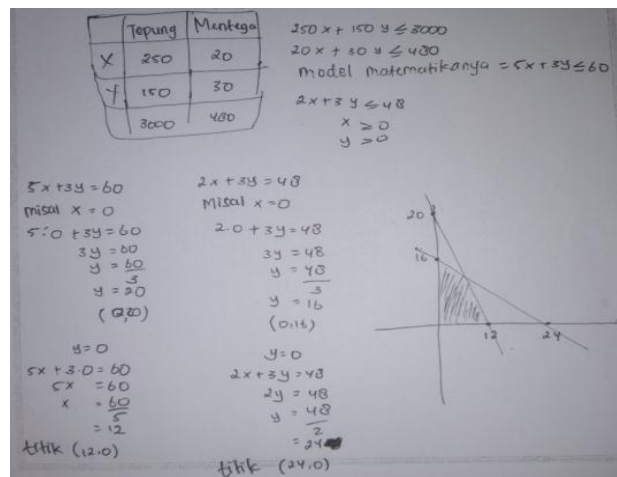 Tepung Mentega
X 250 20
Y 150 30
3000 480
250 x + 150 y ≤ 3000
20 x + 30 y ≤ 480
model matematikanya = 5x + 3y ≤ 60
2x + 3y ≤ 48
x ≥ 0
y ≥ 0
5x + 3y = 60
misal x = 0
5.0 + 3y = 60
3y = 60
y = 60/3
y = 20
(0,20)
y = 0
5x + 3.0 = 60
5x = 60
x = 60/5
= 12
titik (12.0)
2x + 3y = 48
Misal x = 0
2.0 + 3y = 48
3y = 48
y = 48/3
y = 16
(0,16)
y = 0
2x + 3y = 48
2y = 48
y = 48/2
= 24
titik (24,0)
20
16
12 24